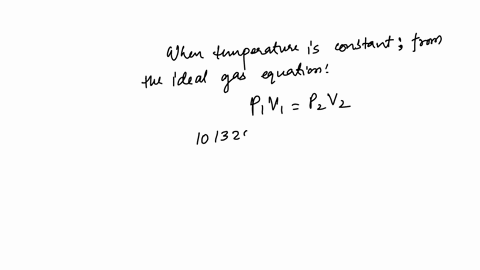 When temperature is constant; from
the ideal gas equation:
P₁V₁ = P₂V₂
10132